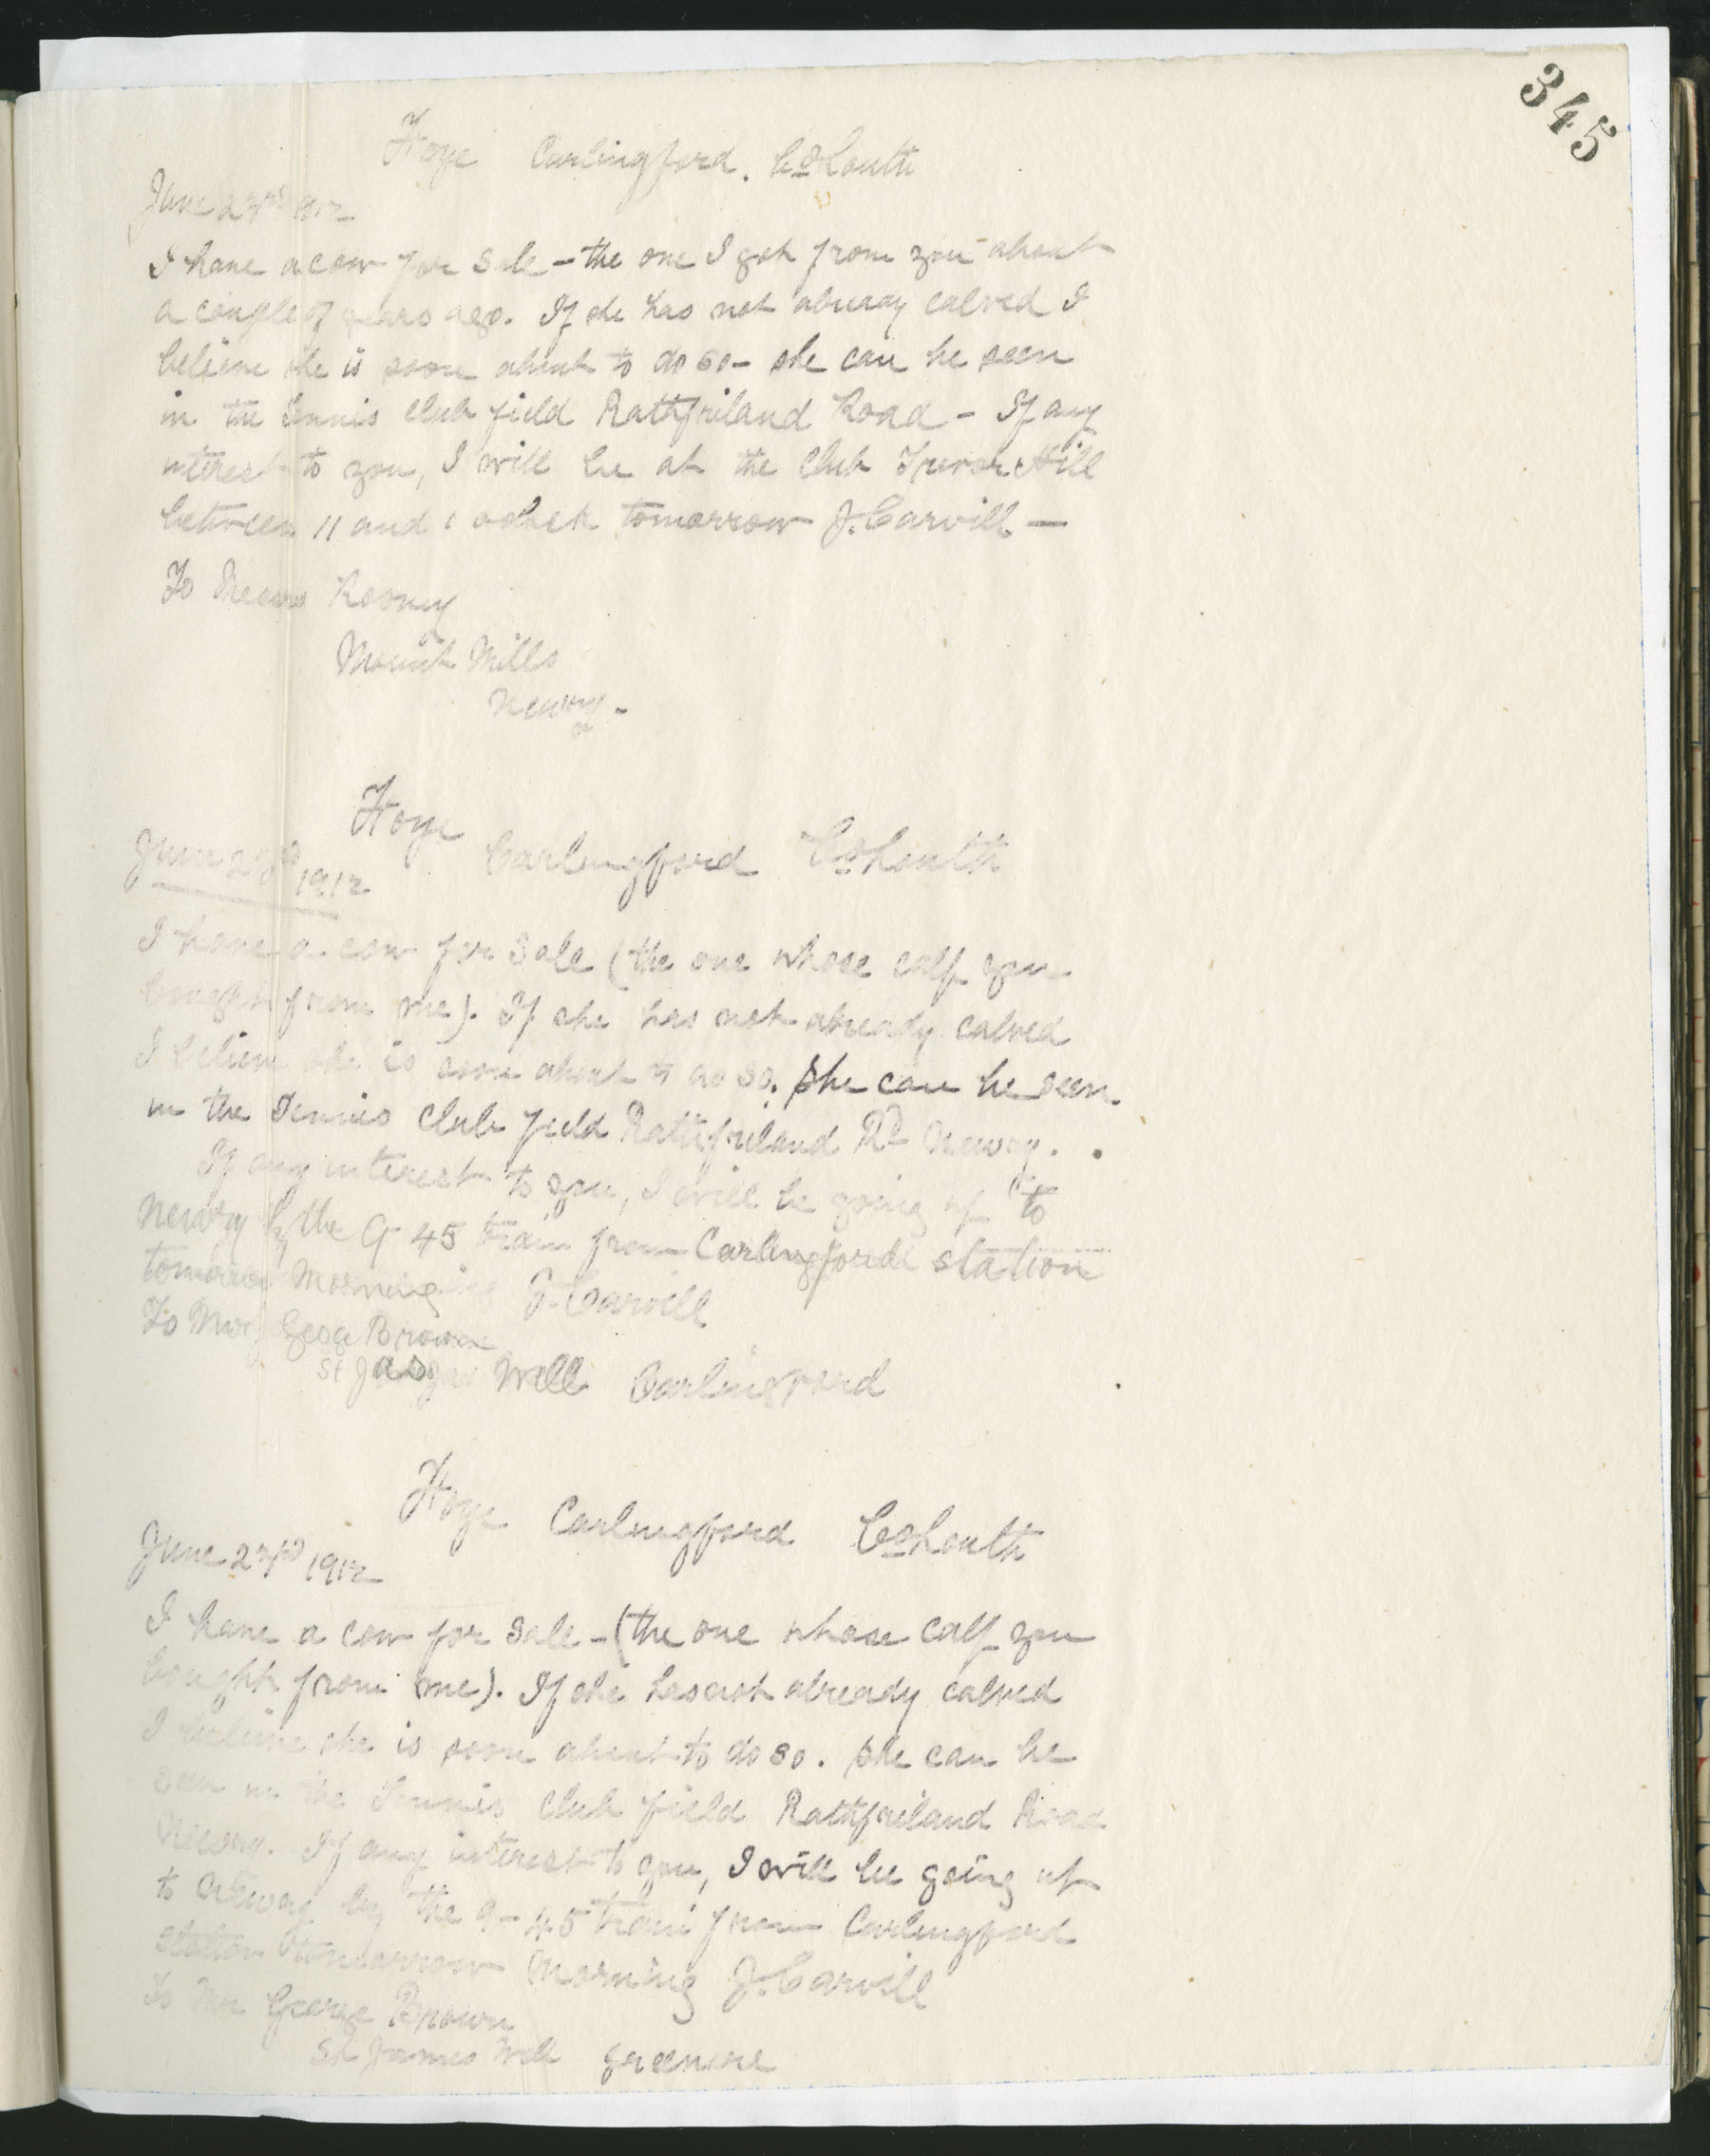 345
Foye Carlingford. Co Louth
June 23rd 1912
I have a cow for sale - the one I got from you about
a couple of years ago. If she has not already calved I
believe she is soon about to do so - she can be seen
in the Tennis Club field Rathfriland Road - If any
interest to you, I will be at the Club Trevor Hill
between 11 and 1 oclock tomorrow J. Carvill -
To Messrs Rooney
Mount Mills
Newry -
Foye
Carlingford Co Louth
June 23rd 1912
I have a cow for sale (the one whose calf you
bought from me). If she has not already calved
I believe she is soon about to do so. She can be seen
in the Tennis Club field Rathfriland Rd Newry.
If any interest to you, I will be going up to
Newry by the 9 45 train from Carlingford station
tomorrow morning J. Carvill
To Mr Brown
St Well Carlingford
Foye Carlingford Co Louth
June 23rd 1912
I have a cow for sale - (the one whose calf you
bought from me). If she has not already calved
I believe she is soon about to do so. She can be
seen in the Tennis Club field Rathfriland Road
Newry. If any interest to you, I will be going up
to Newry by the 9-45 train from Carlingford
station tomorrow morning J. Carvill
To Mr George Brown
St James Well Greenore